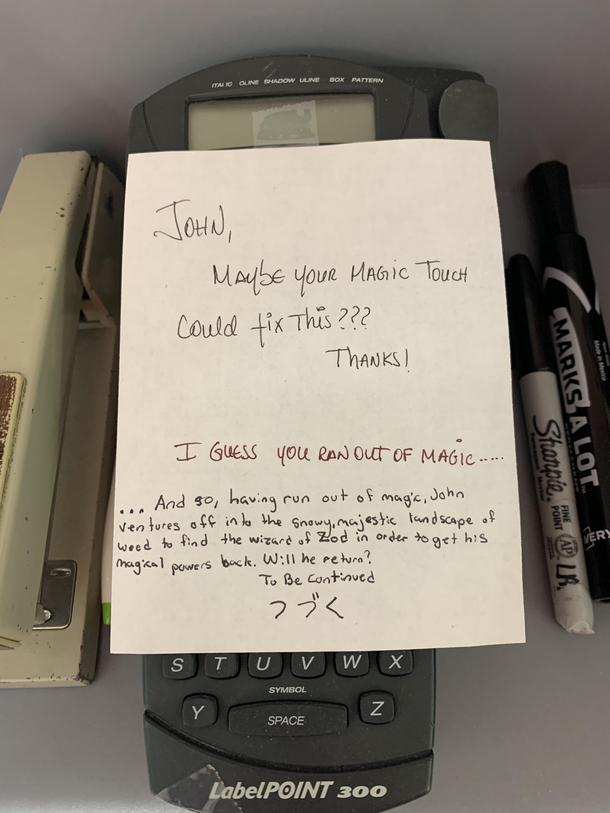 ITALIC OLINE SHADOW ULINE BOX PATTERN
JOHN,
MAYBE YOUR MAGIC TOUCH
COULD fix THIS???
THANKS!
I GUESS YOU RAN OUT OF MAGIC.....
... And so, having run out of magic, John
ventures off into the snowy, majestic landscape of
weed to find the wizard of Zod in order to get his
magical powers back. Will he return?
To Be Continued
つづく
S T U V W X
SYMBOL
Y SPACE Z
LabelPOINT 300
Sharpie
FINE POINT
AP
J.R.
MARKS A LOT
Made in Mexico